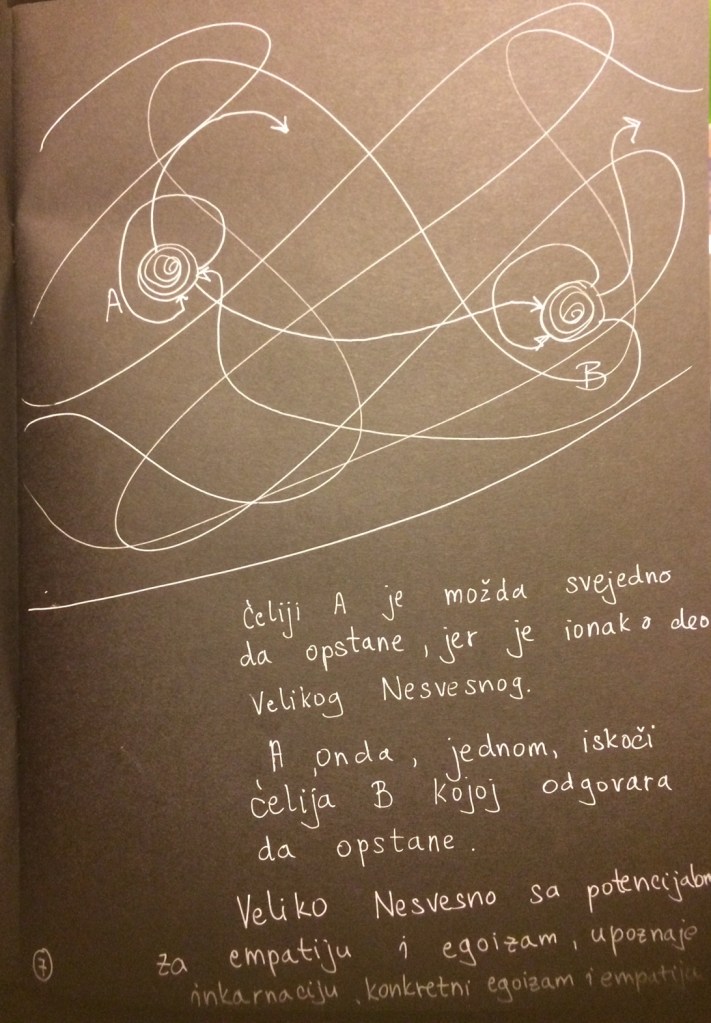 A
B
ćeliji A je možda svejedno
da opstane, jer je ionako deo
Velikog Nesvesnog.
A onda, jednom, iskoči
ćelija B kojoj odgovara
da opstane.
Veliko Nesvesno sa
za empatiju i egoizam, upoznaje
inkarnaciju, konkretni egoizam i empatiju
7